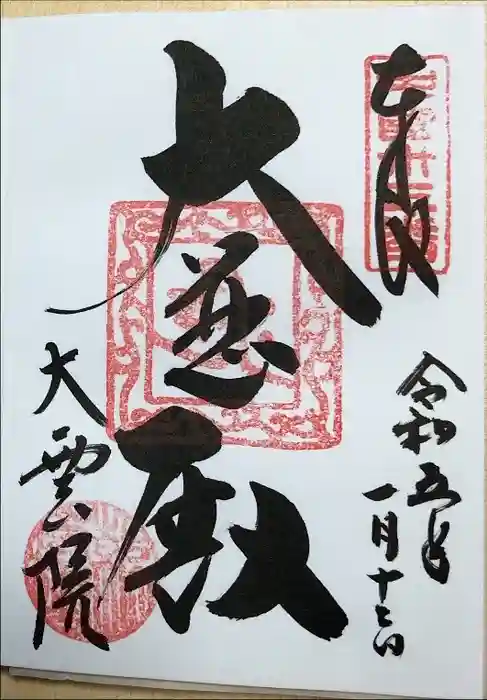 奉拝
令和五年
一月十七日
大慈殿
大雲院